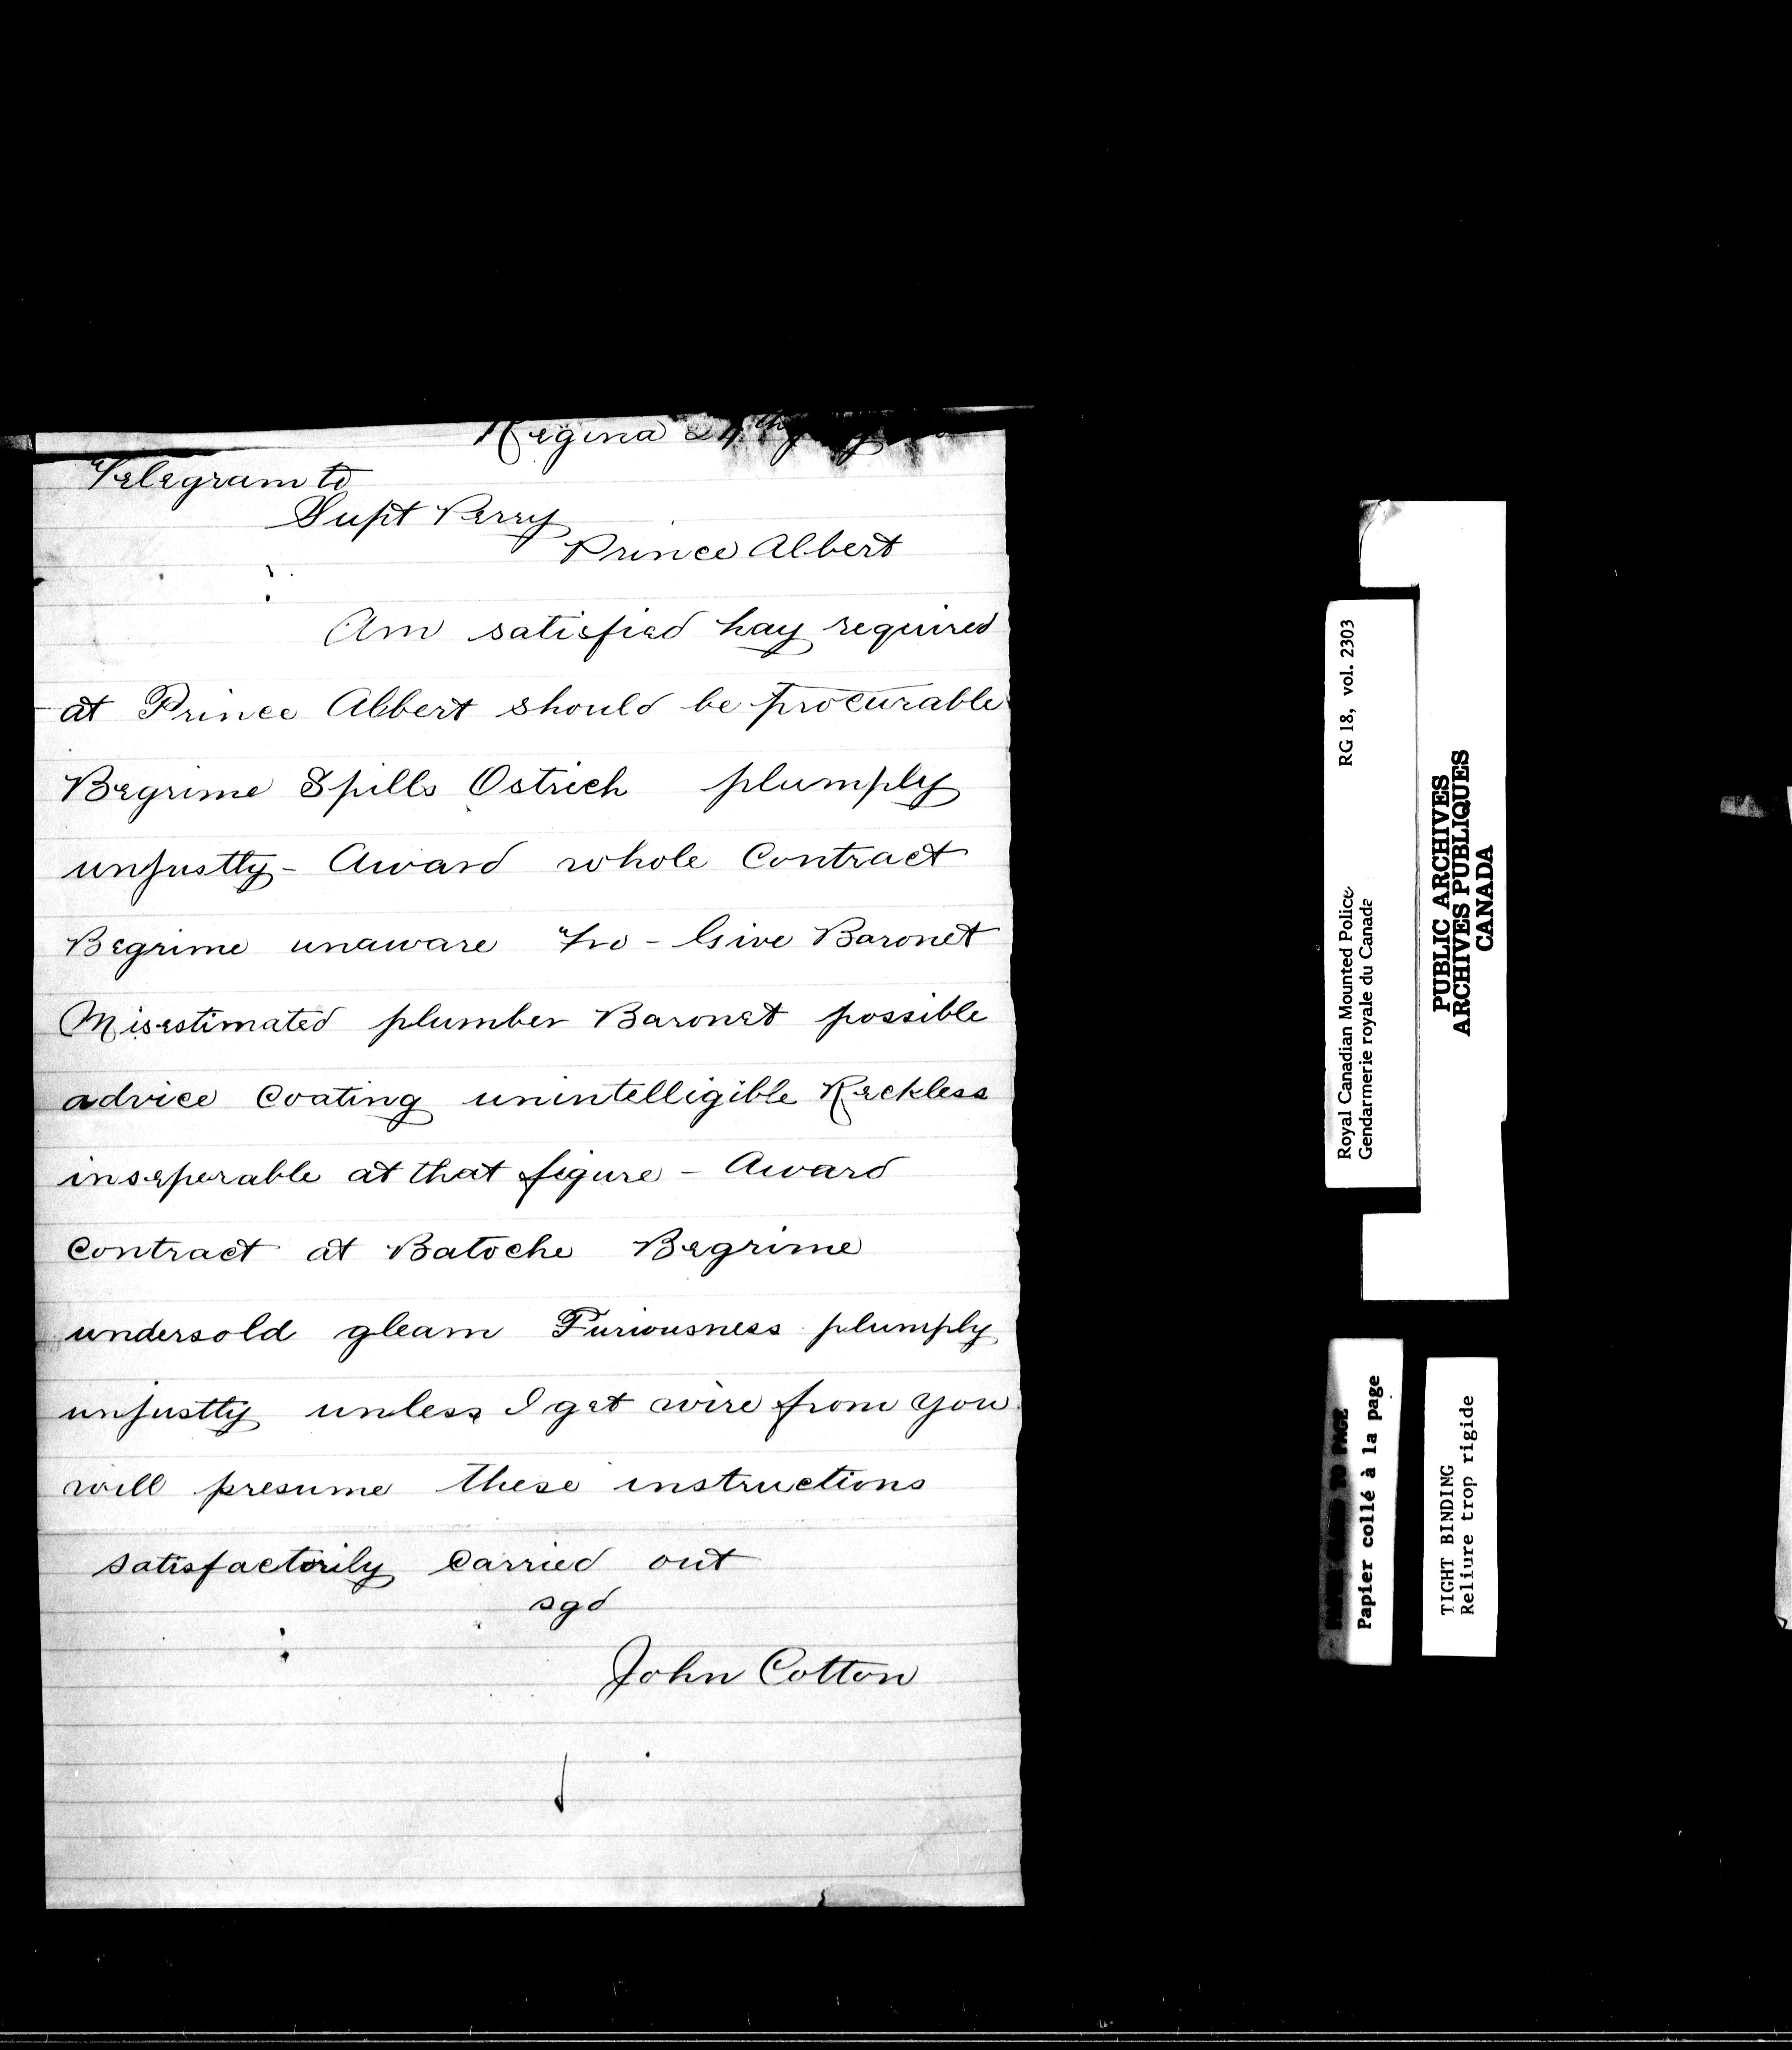 Regina 24th
Telegram to
Supt Perry
Prince Albert
Am satisfied hay required
at Prince Albert should be procurable
Begrime Spills Ostrich plumply
unjustly - Award whole Contract
Begrime unaware - Give Baronet
Misestimated plumber Baronet possible
advice Coating unintelligible Reckless
inseperable at that figure - Award
Contract at Batoche Begrime
undersold gleam Furiousness plumply
unjustly unless I get wire from you
will presume these instructions
satisfactorily Carried out
sgd
John Cotton
Royal Canadian Mounted Police RG 18, vol. 2303
Gendarmerie royale du Canada
PUBLIC ARCHIVES
ARCHIVES PUBLIQUES
CANADA
TO PAGE
Papier collé à la page
TIGHT BINDING
Reliure trop rigide